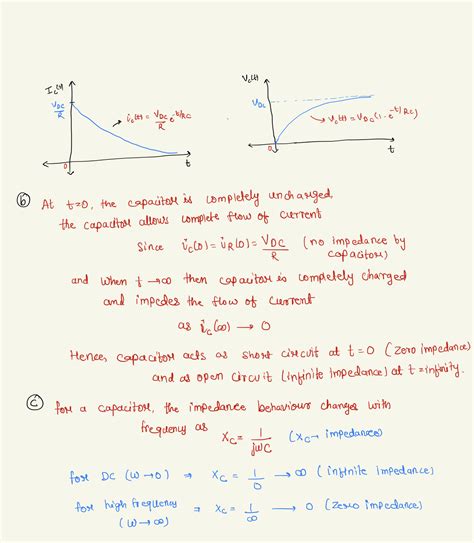 I_c(t)
V_DC/R
i_c(t) = V_DC/R e^-t/RC
0
t
V_c(t)
V_DC
V_c(t) = V_DC (1 - e^-t/RC)
0
t
(b) At t=0, the capacitor is completely uncharged,
the capacitor allows complete flow of current
Since i_c(0) = i_R(0) = V_DC/R (no impedance by
capacitor)
and when t → ∞ then capacitor is completely charged
and impedes the flow of current
as i_c(∞) → 0
Hence, capacitor acts as short circuit at t=0 (zero impedance)
and as open circuit (infinite impedance) at t=infinity.
(c) for a capacitor, the impedance behaviour changes with
frequency as
X_C = 1/jωC (X_C → impedance)
for DC (ω→0) ⇒ X_C = 1/0 → ∞ (infinite impedance)
for high frequency ⇒ X_C = 1/∞ → 0 (zero impedance)
(ω→∞)